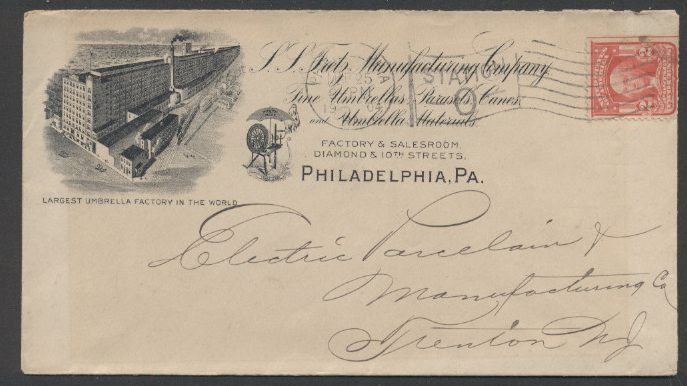 S.S. Fretz Manufacturing Company.
Fine Umbrellas, Parasols, Canes,
and Umbrella Materials.
FACTORY & SALESROOM,
DIAMOND & 10TH STREETS,
PHILADELPHIA, PA.
LARGEST UMBRELLA FACTORY IN THE WORLD
25
STATION
O
Electric Porcelain &
Manufacturing Co
Trenton NJ